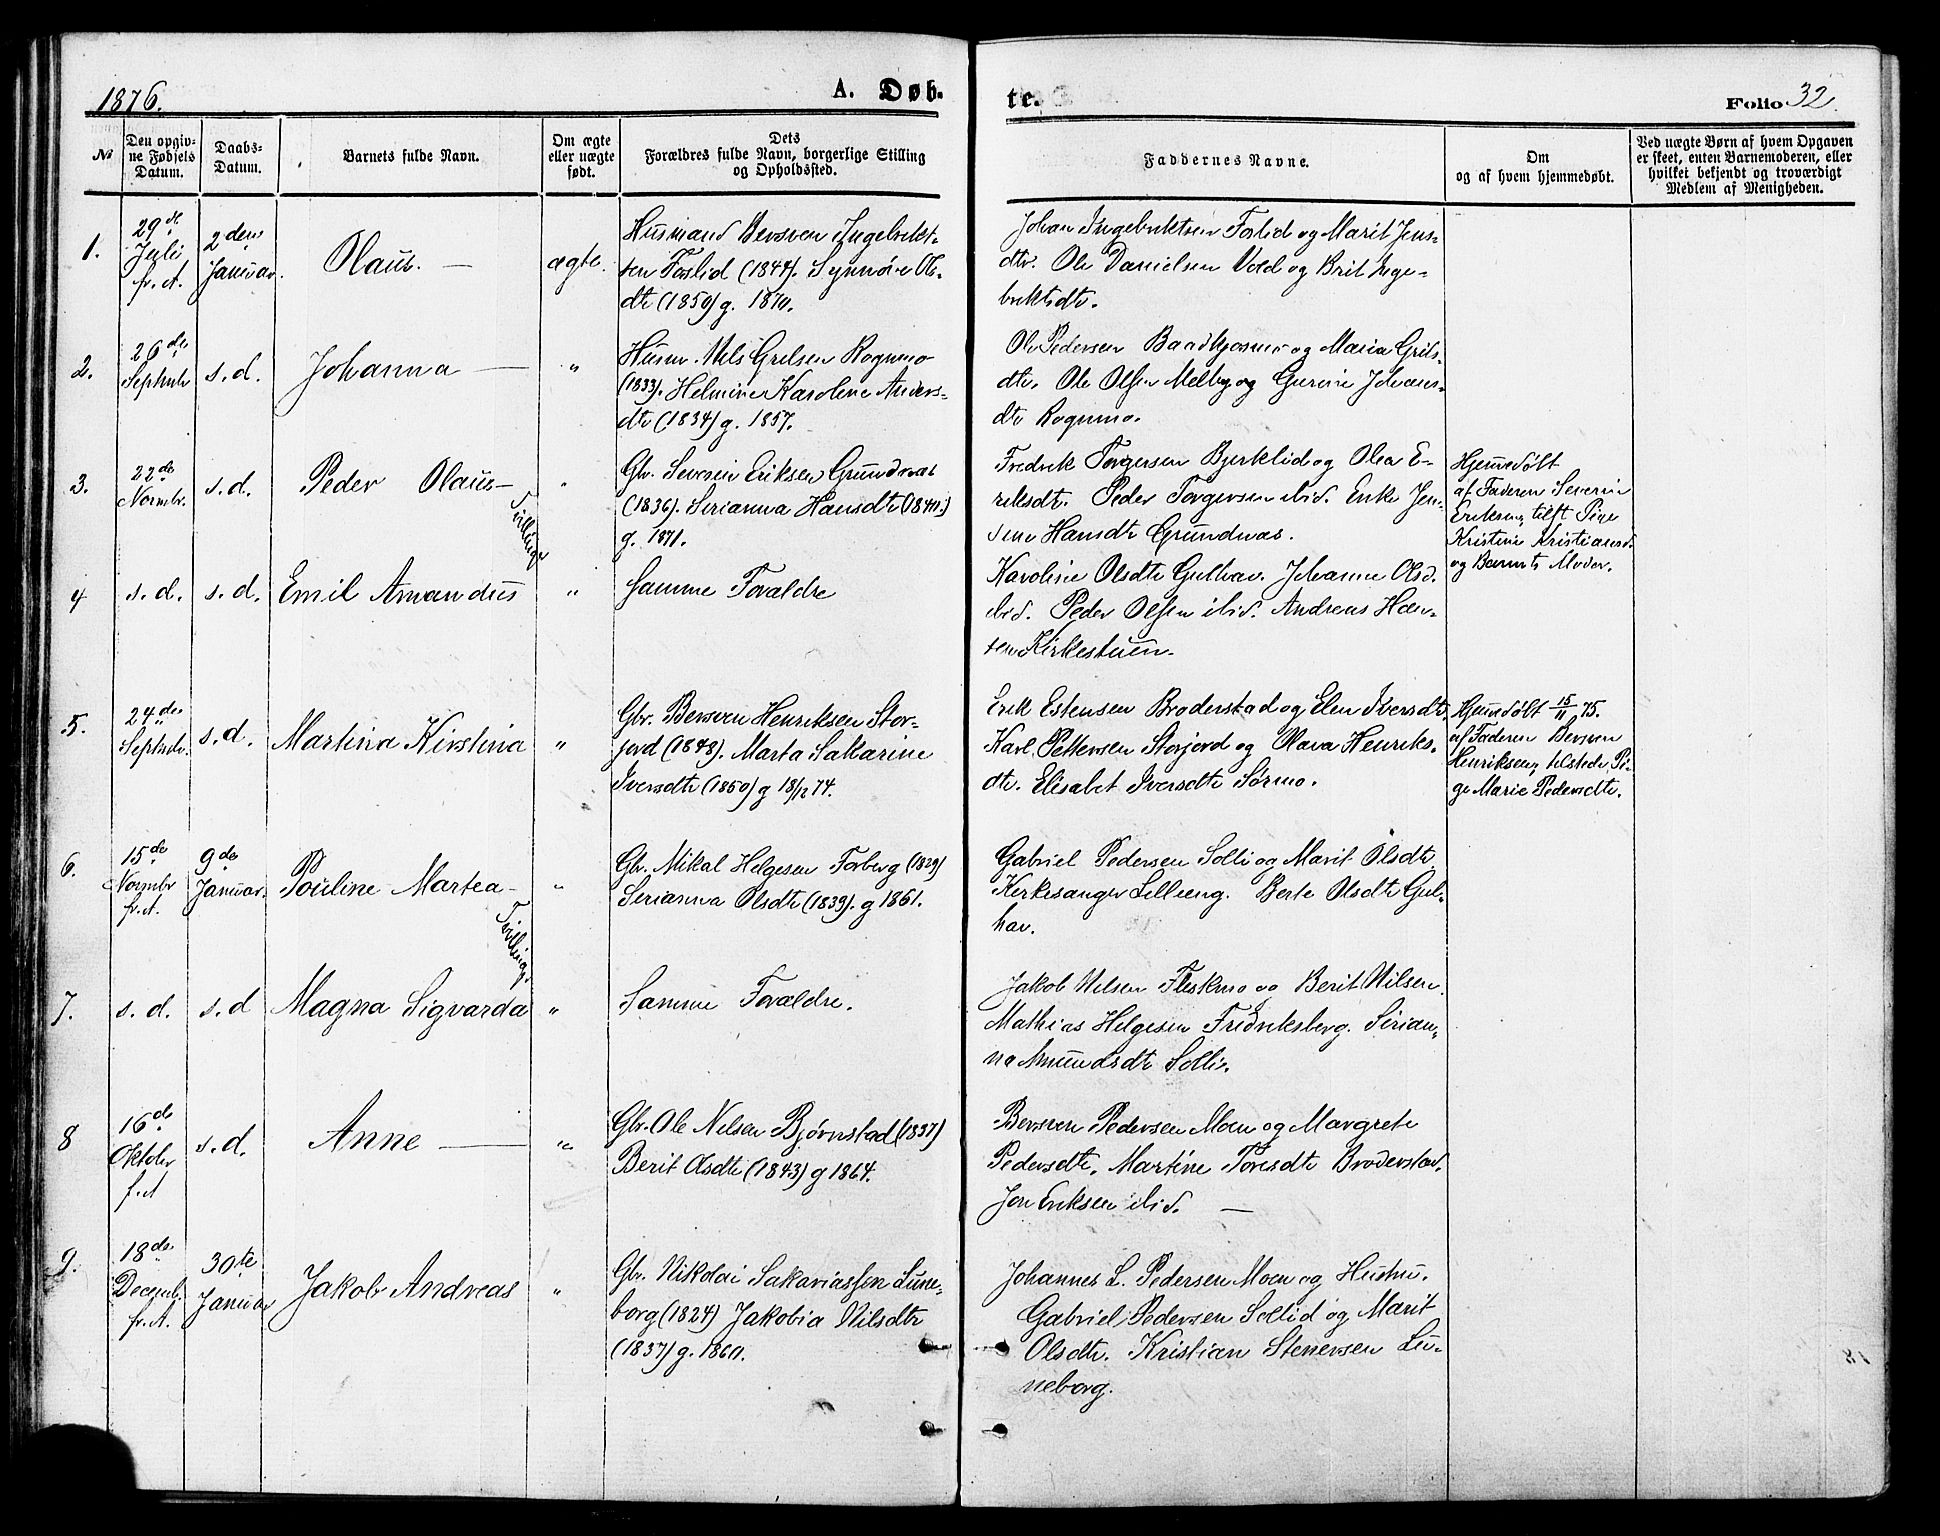 1876.
A. Døb-
te.
Folio 32.
№
Den opgiv-
ne Fødsels
Datum.
Daabs-
Datum.
Barnets fulde Navn.
Om ægte
eller uægte
født.
Dets
Forældres fulde Navn, borgerlige Stilling
og Opholdssted.
Faddernes Navne.
Om
og af hvem hjemmedøbt.
Ved uægte Børn af hvem Opgaven
er skeet, enten Barnemoderen, eller
hvilket bekjendt og troværdigt
Medlem af Menigheden.
1.
29de
Juli
fr. A.
2den
Januar.
Olaus. —
ægte.
Husmand Bersven Ingebrikt-
sen Foslid (1844). Synnøve Ols-
dtr (1850) g. 1870.
Johan Ingebriktsen Foslid og Marit Jens-
dtr. Ole Danielsen Vold og Brit Inge-
briktsdtr.
2.
26de
Septmbr
s. d.
Johanna —
"
Husm. Nels Grelsen Rognmo
(1833). Helmine Karolene Anders-
dtr (1834) g. 1857.
Ole Pedersen Baadkjosmo og Maria Grils-
dtr. Ole Olsen Melby og Gurine Johans-
dtr Rognmo.
3.
22de
Novmbr.
s. d.
Peder Olaus —
Tvillinge
"
Gbr. Severin Eriksen Grundvas
(1836). Serianna Hansdtr (1840.)
g. 1871.
Fredrik Torgersen Bjerklid og Olea E-
riksdt. Peder Torgersen ibid. Enke Jen-
sine Hansdt Grundvas.
Hjemmedøbt
af Faderen Severin
Eriksen, tilst Pige
Kristine Kristiansd.
og Barnets Moder.
4
s. d.
s. d.
Emil Amandus
"
Samme Forældre
Karoline Olsdtr Gulhav. Johanna Olsd.
ibid. Peder Olsen ibid. Andreas Han-
sen Kirkestuen.
5.
24de
Septmbr.
s. d.
Martina Kirstina
"
Gbr. Bersven Henriksen Stor-
jord (1848). Marta Sakarine
Iversdtr (1850) g 18/12 74.
Erik Estensen Broderstad og Elen Iversdtr.
Karl Pettersen Storjord og Olava Henriks-
dtr. Elisabet Iversdtr Sørmo.
Hjemmedøbt 15/11 75.
af Faderen Bersven
Henriksen, tilstede Pi-
ge Marie Pedersdtr.
6.
15de
Novmbr
fr. A.
9de
Januar.
Pouline Martea —
Tvillinge
"
Gbr. Mikal Helgesen Forberg (1829)
Serianna Olsdtr (1839). g 1861.
Gabriel Pedersen Solli og Marit Olsdtr
Kirkesanger Lillieng. Berte Olsdtr Gul-
hav.
7.
s. d.
s. d
Magna Sigvarda
"
Samme Forældre.
Jakob Nilsen Fleskmo og Berit Nilsen.
Mathias Helgesen Fredriksberg. Serian-
na Amundsdtr Solli.
8
16de
Oktobr
f. A
s. d.
Anne —
"
Gbr. Ole Nelsen Bjørnstad (1837)
Berit Olsdtr (1843) g 1864.
Bersven Pedersen Moen og Margrete
Pedersdtr. Martine Toresdtr Broderstad.
Jon Eriksen ibid. —
9.
18de
Decemb.
fr. A.
30te
Januar
Jakob Andreas
"
Gbr. Nikolai Sakariassen Lune-
borg (1824) Jakobia Nilsdtr
(1837) g. 1860.
Johannes L. Pedersen Moen og Hustru.
Gabriel Pedersen Sollid og Marit
Olsdtr. Kristian Stenersen Lu-
neborg.